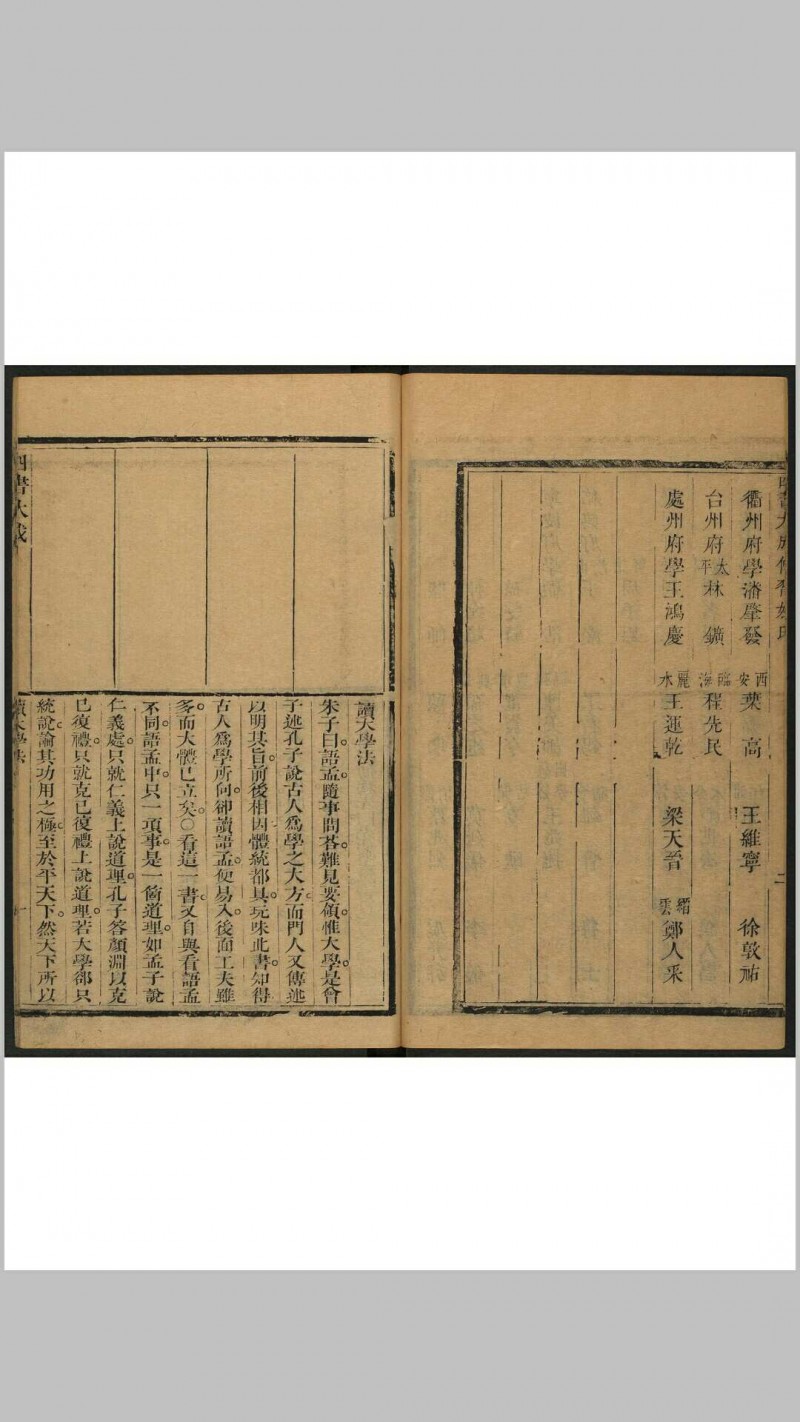 衢州府學潘肇發 西安葉高 王維寧 徐敦祐
台州府太平林鑛 臨海程先民
處州府學王鴻慶 麗水王運乾 梁天晉 縉雲鄭人采
二
讀大學法
朱子曰語孟隨事問荅難見要領惟大學是曾
子述孔子說古人爲學之大方而門人又傳述
以明其旨前後相因體統都具玩味此書知得
古人爲學所向卻讀語孟便易入後面工夫雖
多而大體已立矣○看這一書又自與看語孟
不同語孟中只一項事是一箇道理如孟子說
仁義處只就仁義上說道理孔子答顏淵以克
已復禮只就克已復禮上說道理若大學郤只
統說論其功用之極至於平天下然天下所以
四書大成
讀大學法
一